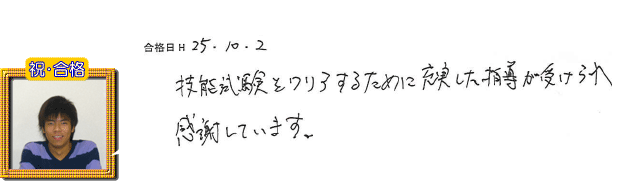 合格日 H 25.10.2
祝・合格
技能試験をクリアするために充実した指導が受けられ
感謝しています。